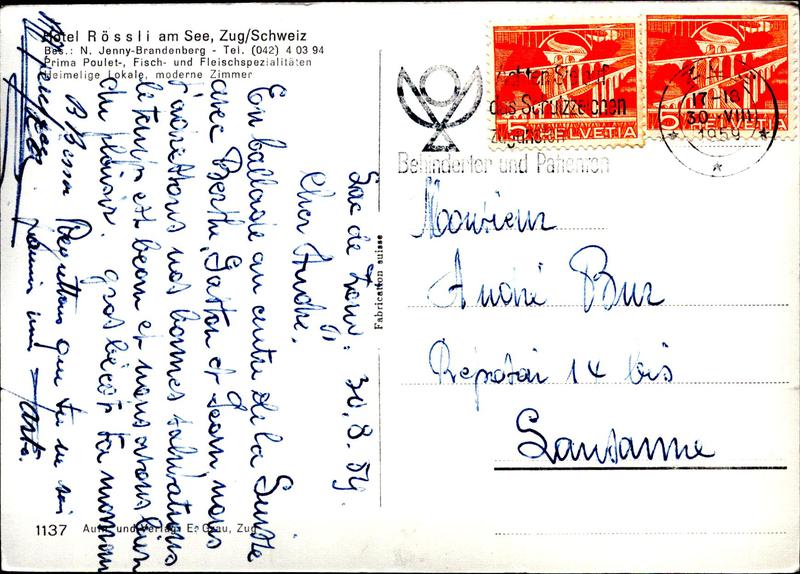 Hotel Rössli am See, Zug/Schweiz
Bes.: N. Jenny-Brandenberg - Tel. (042) 4 03 94
Prima Poulet-, Fisch- und Fleischspezialitäten
Heimelige Lokale, moderne Zimmer
Lac de Zoug. 30.8.59.
Cher André,
En ballade au centre de la Suisse
avec Berthe, Gaston et Jean, nous
t'envoyons nos bonnes salutations
le temps est beau et nous avons bien
du plaisir. gros bécot ta maman
Regrettons que tu ne sois
parmi nous
1137 Aufn. und Verlag: E. Grau, Zug
Fabrication suisse
HELVETIA 5
HELVETIA 5
17-18
30.VIII.
1959
Achten Sie auf
das Schutzzeichen
Behinderter und Patienten
Monsieur
André Bur
14 bis
Lausanne